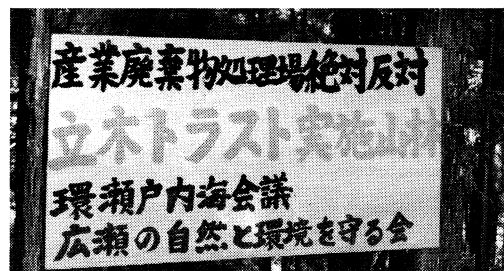 産業廃棄物処理場絶対反対
立木トラスト実施山林
環瀬戸内海会議
広瀬の自然と環境を守る会